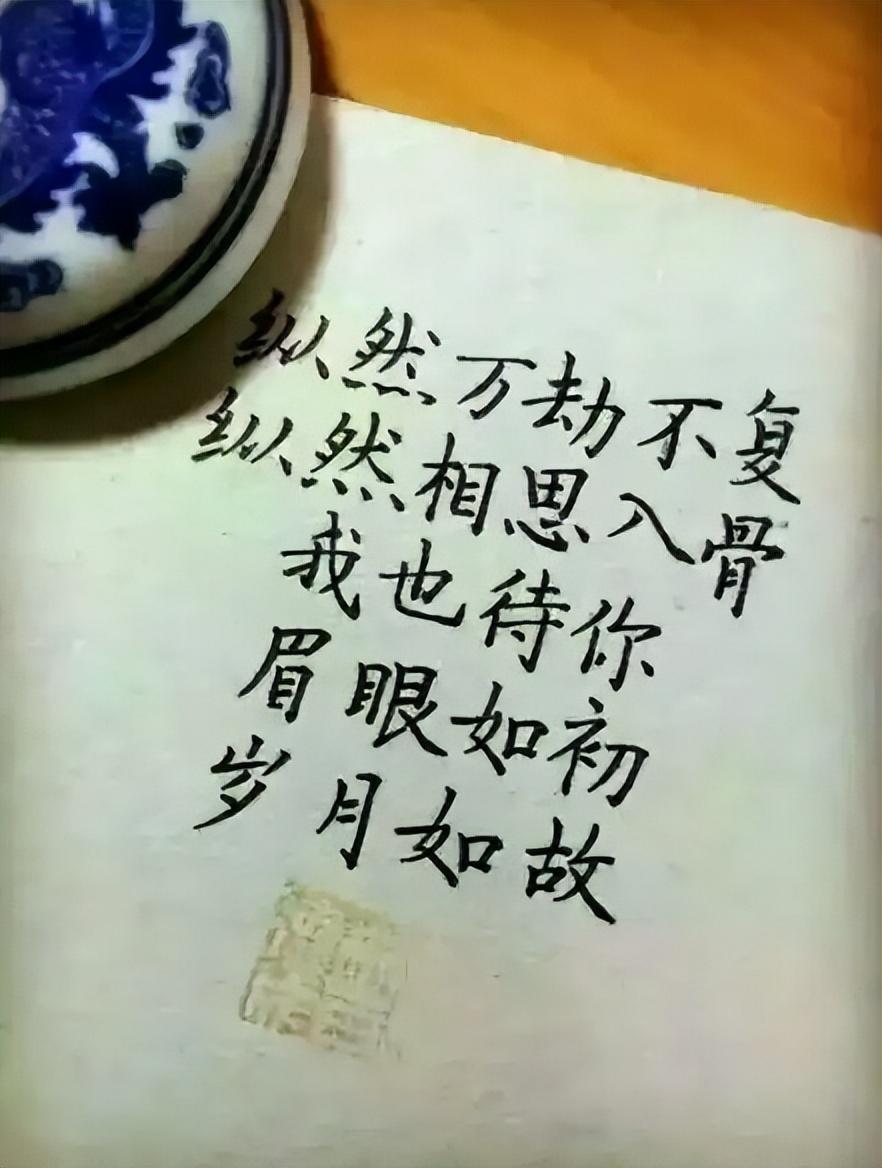 纵然万劫不复
纵然相思入骨
我也待你
眉眼如初
岁月如故